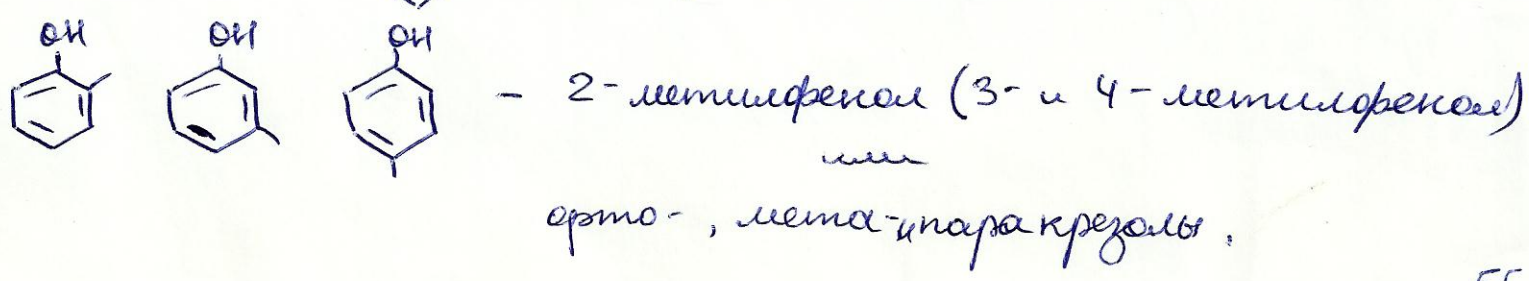 OH OH OH
- 2-метилфенол (3- и 4-метилфенол)
или
орто-, мета- и пара крезолы.